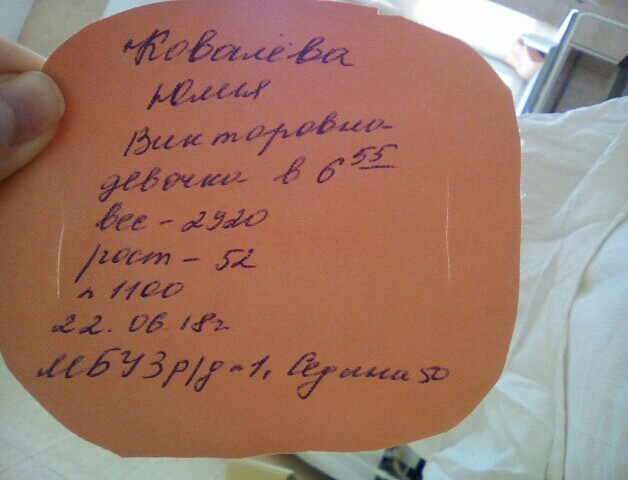 Ковалёва
Юлия
Викторовна
девочка в 6 55
вес - 2920
рост - 52
n 1100
22.06.18г
МБУЗ р/д n1, Седина 50